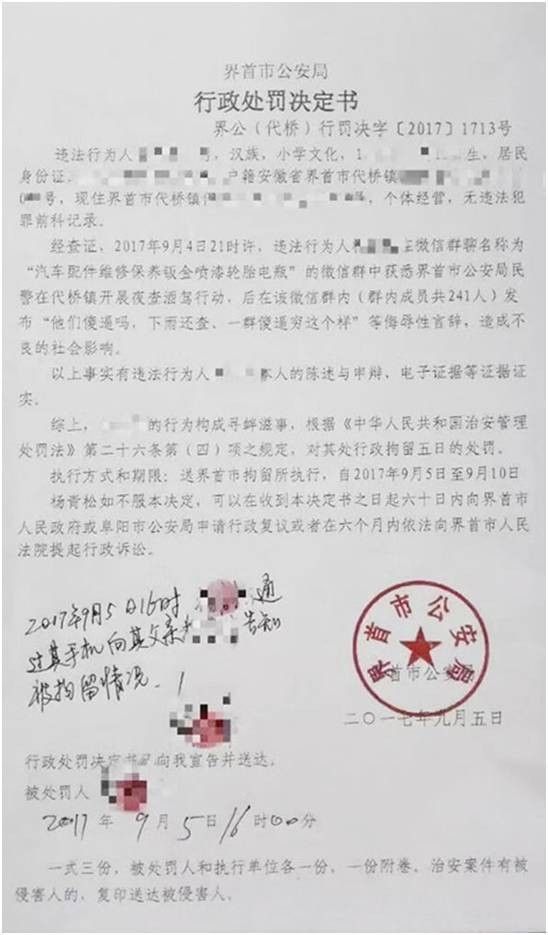 界首市公安局
行政处罚决定书
界公（代桥）行罚决字〔2017〕1713号
违法行为人 号，汉族，小学文化，1 生，居民
身份证 户籍安徽省界首市代桥镇
号，现住界首市代桥镇 ，个体经营，无违法犯
罪前科记录。
经查证，2017年9月4日21时许，违法行为人 在微信群聊名称为
“汽车配件维修保养钣金喷漆轮胎电瓶”的微信群中获悉界首市公安局民
警在代桥镇开展夜查酒驾行动，后在该微信群内（群内成员共241人）发
布“他们傻逼吗，下雨还查、一群傻逼穷这个样”等侮辱性言辞，造成不
良的社会影响。
以上事实有违法行为人 本人的陈述与申辩、电子证据等证据证
实。
综上， 的行为构成寻衅滋事，根据《中华人民共和国治安管理
处罚法》第二十六条第（四）项之规定，对其处行政拘留五日的处罚。
执行方式和期限：送界首市拘留所执行，自2017年9月5日至9月10日
杨青松如不服本决定，可以在收到本决定书之日起六十日内向界首市
人民政府或阜阳市公安局申请行政复议或者在六个月内依法向界首市人民
法院提起行政诉讼。
2017年9月5日16时 通
过其手机向其父亲 告知
被拘留情况。
界首市公安局
首市公安局
二〇一七年九月五日
行政处罚决定书已向我宣告并送达。
被处罚人
2017年9月5日16时00分
一式三份，被处罚人和执行单位各一份，一份附卷。治安案件有被
侵害人的，复印送达被侵害人。